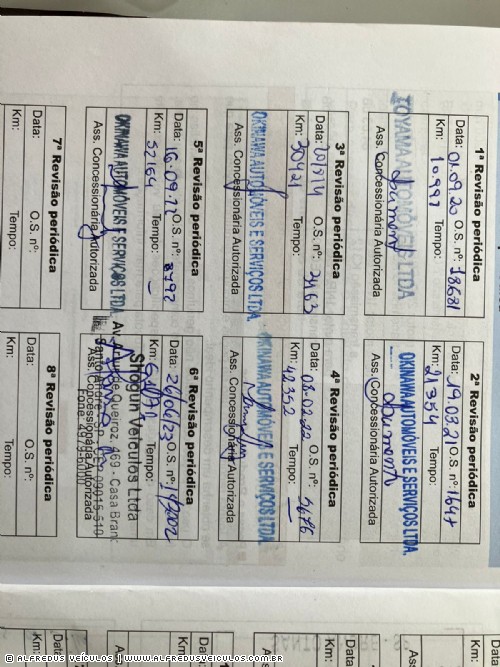 1ª Revisão periódica
Data: 01.09.20 O.S. nº: 18681
Km: 10.997 Tempo:
TOYAMA AUTOMÓVEIS LTDA
Ass. Concessionária Autorizada
2ª Revisão periódica
Data: 19.03.21 O.S. nº: 1647
Km: 21354 Tempo:
OKINAWA AUTOMÓVEIS E SERVIÇOS LTDA.
Ass. Concessionária Autorizada
3ª Revisão periódica
Data: O.S. nº: 2463
Km: 30421 Tempo:
OKINAWA AUTOMÓVEIS E SERVIÇOS LTDA.
Ass. Concessionária Autorizada
4ª Revisão periódica
Data: 08.02.22 O.S. nº: 5676
Km: 42352 Tempo: —
OKINAWA AUTOMÓVEIS E SERVIÇOS LTDA.
Ass. Concessionária Autorizada
5ª Revisão periódica
Data: 16.09.22 O.S. nº: 8792
Km: 52164 Tempo: —
OKINAWA AUTOMÓVEIS E SERVIÇOS LTDA.
Ass. Concessionária Autorizada
6ª Revisão periódica
Data: 26/06/23 O.S. nº:
Km: Tempo:
Shogun Veículos Ltda
Av. Artur de Queiroz, 469 - Casa Branc
Santo André - SP - CEP 09015-510
Ass. Concessionária Autorizada
Fone: 4979-5000
7ª Revisão periódica
Data: O.S. nº:
Km: Tempo:
Ass. Concessionária Autorizada
8ª Revisão periódica
Data: O.S. nº:
Km: Tempo:
Ass. Concessionária Autorizada
Data:
Km:
Ass. Con
Data:
Km:
Ass. Con
Data:
Km:
Ass. Con
Data:
Km:
© ALFREDUS VEÍCULOS | WWW.ALFREDUSVEICULOS.COM.BR